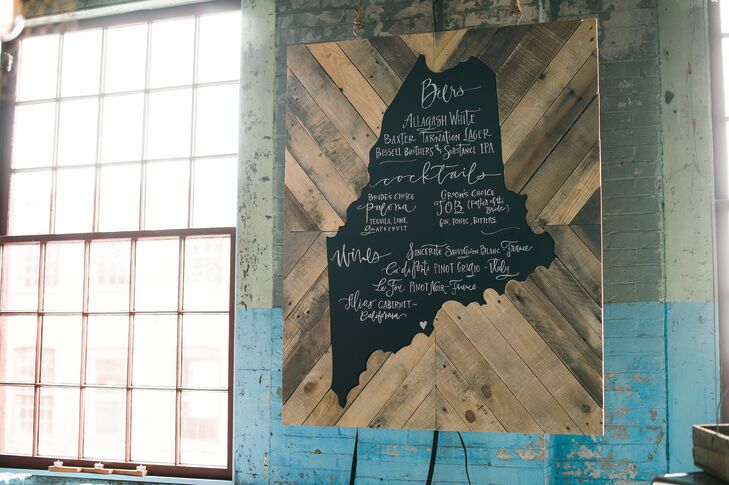 Beers
Allagash White
Baxter Tarnation Lager
Bissell Brothers "Substance" IPA
Cocktails
Bride's Choice
Paloma
Tequila, Lime,
Grapefruit
Groom's Choice
F.O.B. (Father of the Bride)
Gin, Tonic, Bitters
Wines
Sincerite Sauvignon Blanc - France
Ca'di Ponti Pinot Grigio - Italy
Le Fou Pinot Noir - France
Cabernet -
California